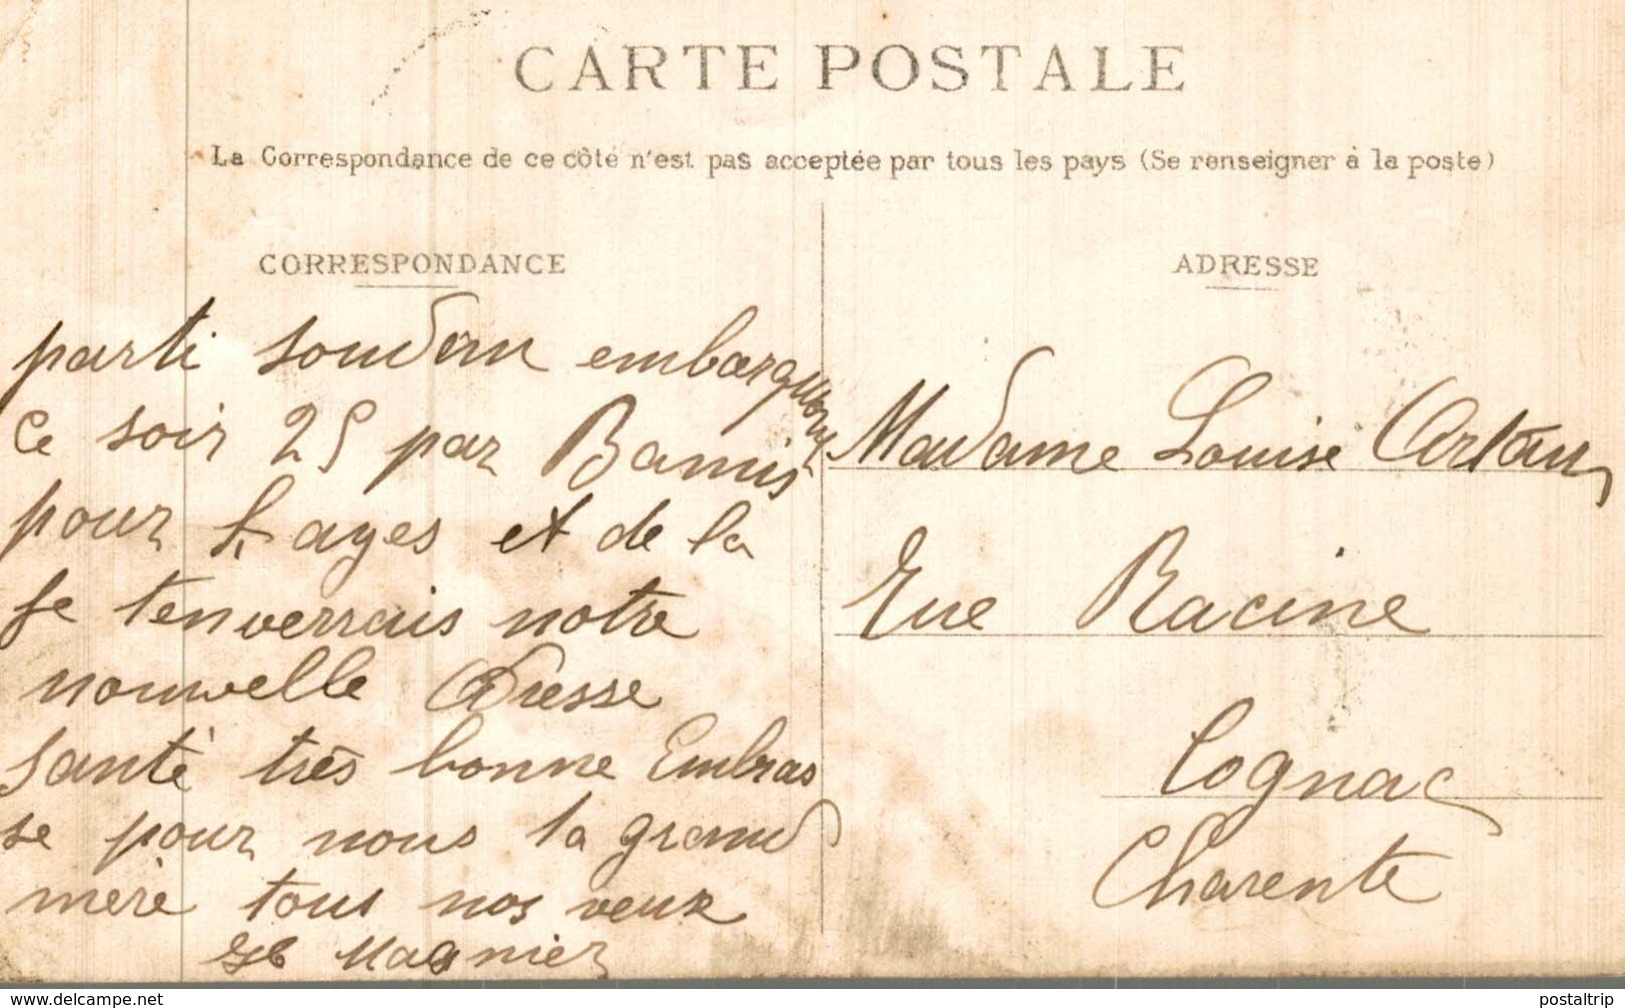 CARTE POSTALE
La Correspondance de ce côté n'est pas acceptée par tous les pays (Se renseigner à la poste)
CORRESPONDANCE
parti soudein embarquons
ce soir 25 par Bamis
pour Layes et de la
Je tenverrais notre
nouvelle Adresse
santé très bonne Embras
se pour nous ta grand
mère tous nos veux
Magnier
ADRESSE
Madame Louise
Rue Racine
Cognac
Charente
www.delcampe.net
postaltrip